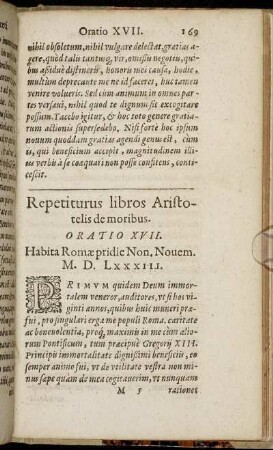 Oratio XVII. 169
nihil obsoletum, nihil vulgare delectat, gratias a-
gere, quòd talis tantusq́, vir, omissis negotiis, qui-
bus aßiduè distineris, honoris mei causa, hodie,
multùm deprecante me ne id faceres, huc tamen
venire volueris. Sed cùm animum in omnes par-
tes versaui, nihil quod te dignum sit excogitare
possum. Tacebo igitur, & hoc toto genere gratia-
rum actionis supersedebo. Nisi fortè hoc ipsum
nouum quoddam gratias agendi genus est, cùm
is, qui beneficium accepit, magnitudinem illi-
us verbis à se exæquari non posse confitens, conti-
cescit.
Repetiturus libros Aristo-
telis de moribus.
ORATIO XVII.
Habita Romæ pridie Non, Nouem.
M. D. LXXXIII.
PRIMVM quidem Deum immor-
talem veneror, auditores, vt si hos vi-
ginti annos, quibus huic muneri præ-
fui, pro singulari erga me populi Romani caritate
ac beneuolentia, proq́, maximis in me cùm alio-
rum Pontificum, tum præcipuè Gregorij XIII.
Principis immortalitate dignißimi beneficiis, eo
semper animo fui, vt de vtilitate vestra non mi-
nus sæpe quàm de mea cogitauerim, vt nunquam
M 5 rationes